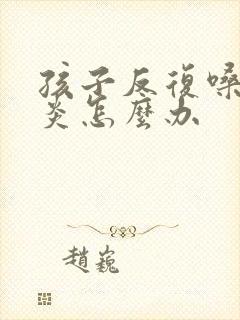 孩子反復嗓
炎怎麼办
趙巍